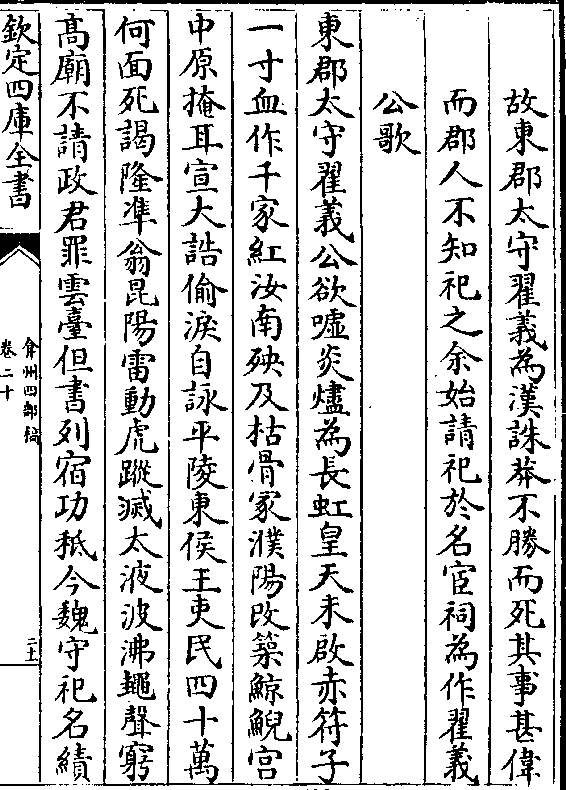 故東郡太守翟義為漢誅莽不勝而死其事甚偉
而郡人不知祀之余始請祀於名宦祠為作翟義
公歌
東郡太守翟義公欲噓炎燼為長虹皇天未啟赤符子
一寸血作千家紅汝南殃及枯骨冢濮陽改築鯨鯢宫
中原掩耳宣大誥偷淚自詠平陵東侯王吏民四十萬
何面死謁隆凖翁昆陽雷動虎蹤滅太液波沸蠅聲窮
髙廟不請政君罪雲臺但書列宿功秪今魏守祀名績
欽定四庫全書
弇州四部稿
卷二十
二十一